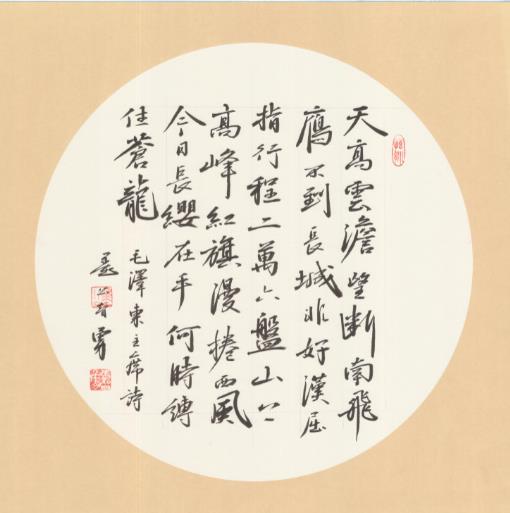 天高雲澹望斷南飛
鴈不到長城非好漢屈
指行程二萬六盤山上
高峰紅旗漫捲西風
今日長纓在手何時縛
住蒼龍
毛澤東主席詩